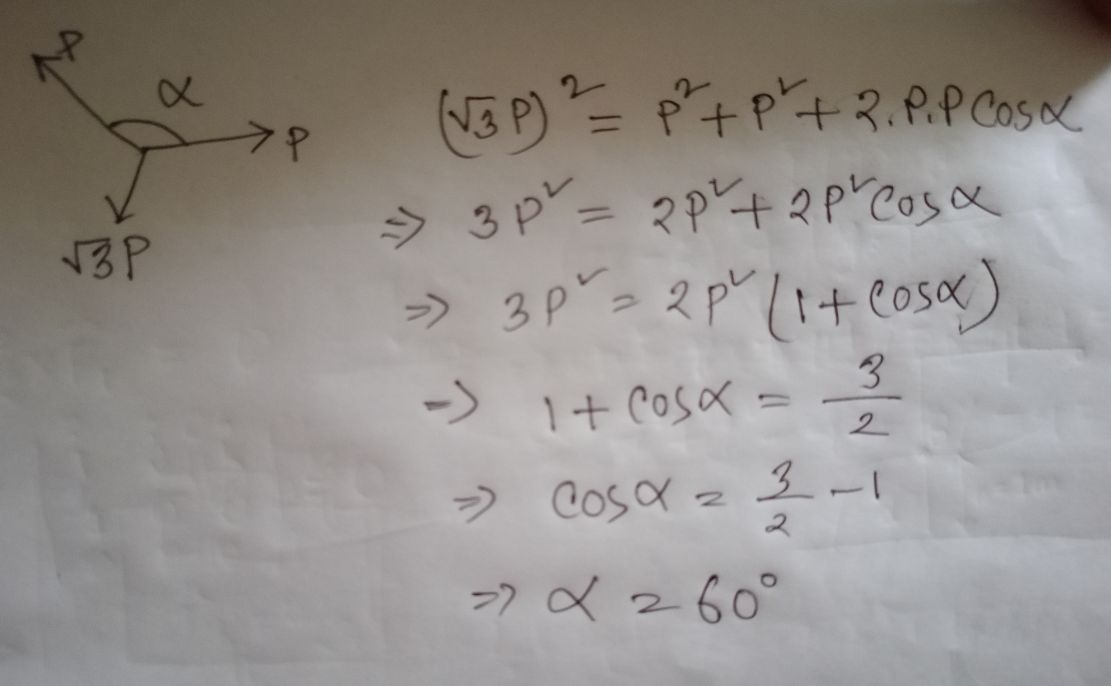 P
α
P
√3P
(√3P)² = P² + P² + 2.P.P Cosα
⇒ 3P² = 2P² + 2P² Cosα
⇒ 3P² = 2P² (1 + Cosα)
⇒ 1 + Cosα = 3/2
⇒ Cosα = 3/2 - 1
⇒ α = 60°